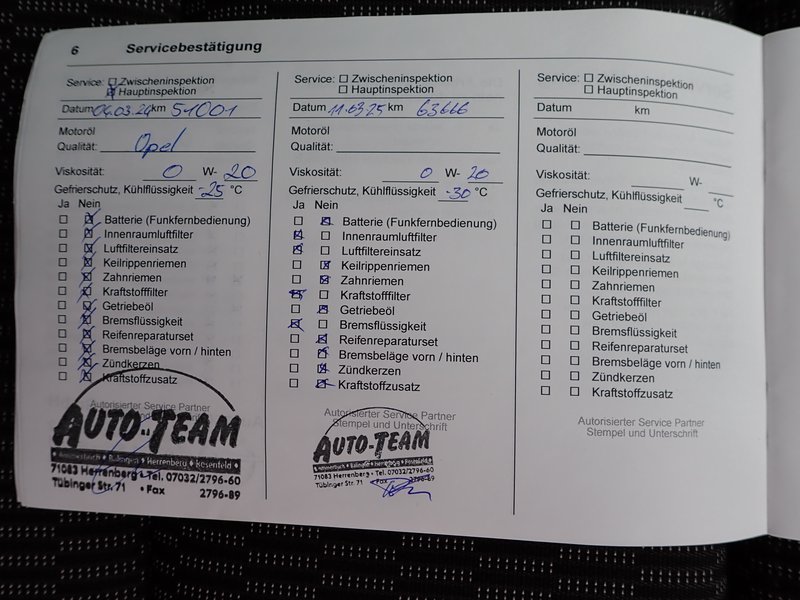 6 Servicebestätigung
Service: Zwischeninspektion
Hauptinspektion
Datum 04.03.24 km 51001
Motoröl
Qualität: Opel
Viskosität: 0 W- 20
Gefrierschutz, Kühlflüssigkeit -25 °C
Ja Nein
Batterie (Funkfernbedienung)
Innenraumluftfilter
Luftfiltereinsatz
Keilrippenriemen
Zahnriemen
Kraftstofffilter
Getriebeöl
Bremsflüssigkeit
Reifenreparaturset
Bremsbeläge vorn / hinten
Zündkerzen
Kraftstoffzusatz
Autorisierter Service Partner
AUTO-TEAM
Balingen • Herrenberg • Rosenfeld
71083 Herrenberg • Tel. 07032/2796-60
Tübinger Str. 71 • Fax 2796-89
Service: Zwischeninspektion
Hauptinspektion
Datum 11.03.25 km 63666
Motoröl
Qualität:
Viskosität: 0 W- 20
Gefrierschutz, Kühlflüssigkeit -30 °C
Ja Nein
Batterie (Funkfernbedienung)
Innenraumluftfilter
Luftfiltereinsatz
Keilrippenriemen
Zahnriemen
Kraftstofffilter
Getriebeöl
Bremsflüssigkeit
Reifenreparaturset
Bremsbeläge vorn / hinten
Zündkerzen
Kraftstoffzusatz
Autorisierter Service Partner
Stempel und Unterschrift
AUTO-TEAM
71083 Herrenberg • Tel. 07032/2796-60
Tübinger Str. 71 • Fax 2796-89
Service: Zwischeninspektion
Hauptinspektion
Datum km
Motoröl
Qualität:
Viskosität: W-
Gefrierschutz, Kühlflüssigkeit °C
Ja Nein
Batterie (Funkfernbedienung)
Innenraumluftfilter
Luftfiltereinsatz
Keilrippenriemen
Zahnriemen
Kraftstofffilter
Getriebeöl
Bremsflüssigkeit
Reifenreparaturset
Bremsbeläge vorn / hinten
Zündkerzen
Kraftstoffzusatz
Autorisierter Service Partner
Stempel und Unterschrift